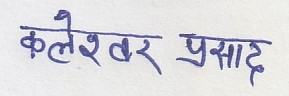 कलेश्वर प्रसाद